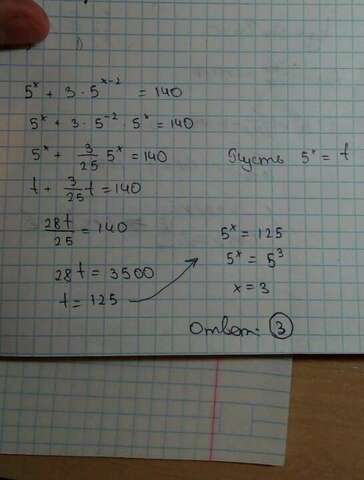 5ˣ + 3 · 5ˣ⁻² = 140
5ˣ + 3 · 5⁻² · 5ˣ = 140
5ˣ + 3/25 5ˣ = 140
Пусть 5ˣ = t
t + 3/25 t = 140
28t/25 = 140
28t = 3500
t = 125
5ˣ = 125
5ˣ = 5³
x = 3
Ответ: 3